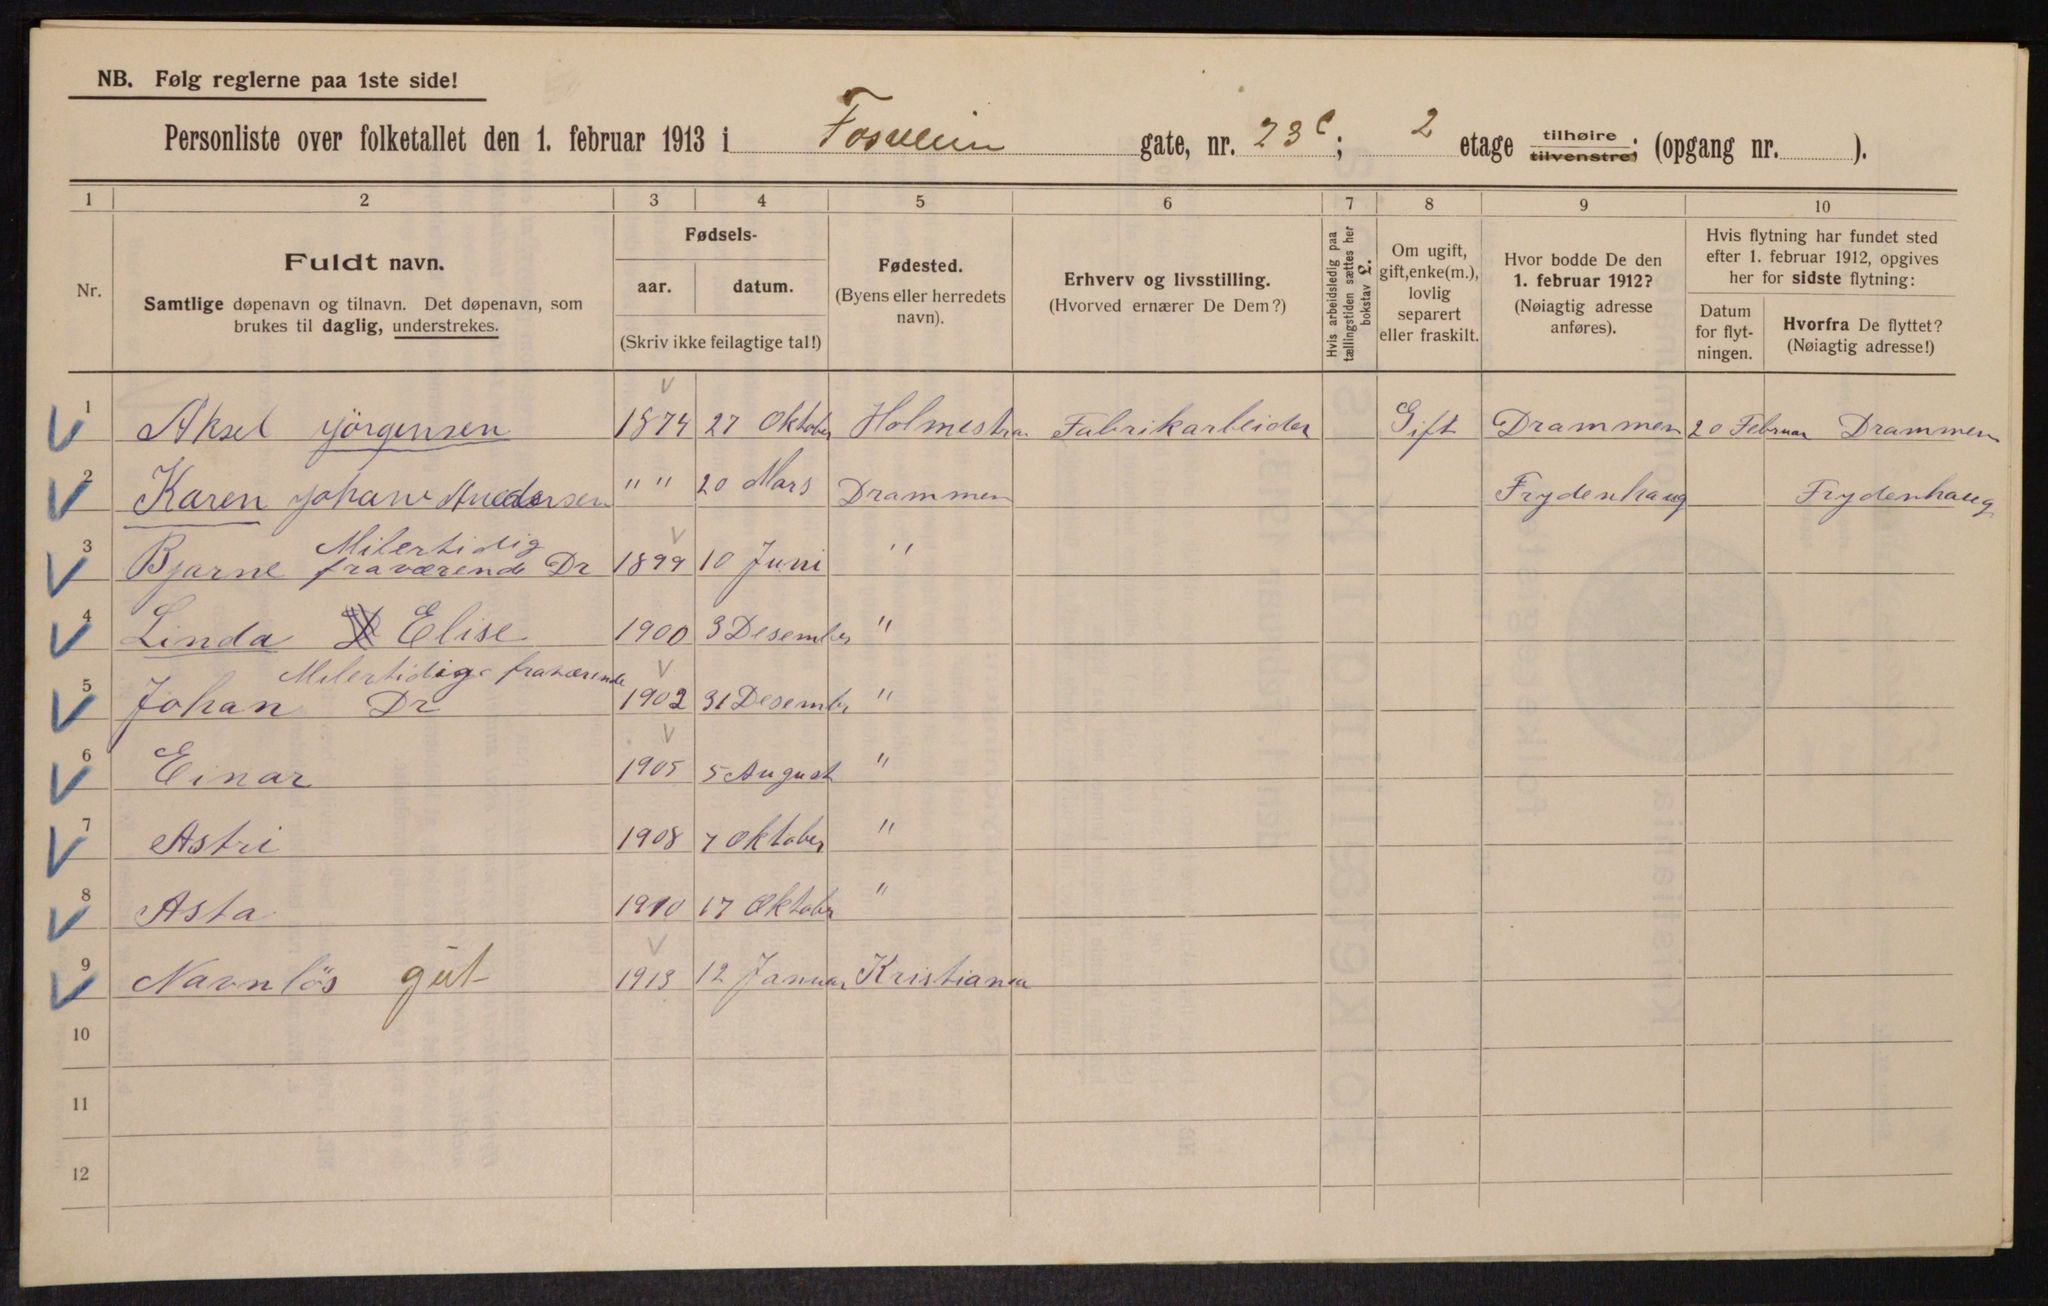 NB. Følg reglerne paa 1ste side!
Personliste over folketallet den 1. februar 1913 i Fosveien gate, nr. 23c; 2 etage tilhøire tilvenstre; (opgang nr. ).
1 2 3 4 5 6 7 8 9 10
Nr.
Fuldt navn.
Samtlige døpenavn og tilnavn. Det døpenavn, som
brukes til daglig, understrekes.
Fødsels-
aar. datum.
(Skriv ikke feilagtige tal!)
Fødested.
(Byens eller herredets
navn).
Erhverv og livsstilling.
(Hvorved ernærer De Dem?)
Hvis arbeidsledig paa
tællingstiden sættes her
bokstav L.
Om ugift,
gift, enke(m.),
lovlig
separert
eller fraskilt.
Hvor bodde De den
1. februar 1912?
(Nøiagtig adresse
anføres).
Hvis flytning har fundet sted
efter 1. februar 1912, opgives
her for sidste flytning:
Datum
for flyt-
ningen.
Hvorfra De flyttet?
(Nøiagtig adresse!)
1 Aksel Jörgensen 1874 27 Oktober Holmestran Fabrikarbeider Gift Drammen 20 Februar Drammen
2 Karen Johane Andersen " " 20 Mars Drammen Frydenhaug Frydenhaug
3 Bjarne Milertidig fraværende Dr 1899 10 Juni "
4 Linda Elise 1900 3 Desember "
5 Johan Milertidig fraværende Dr 1902 31 Desember "
6 Einar 1905 5 August "
7 Astri 1908 7 Oktober "
8 Asta 1910 17 Oktober "
9 Navnlös gut 1913 12 Januar Kristiania
10
11
12